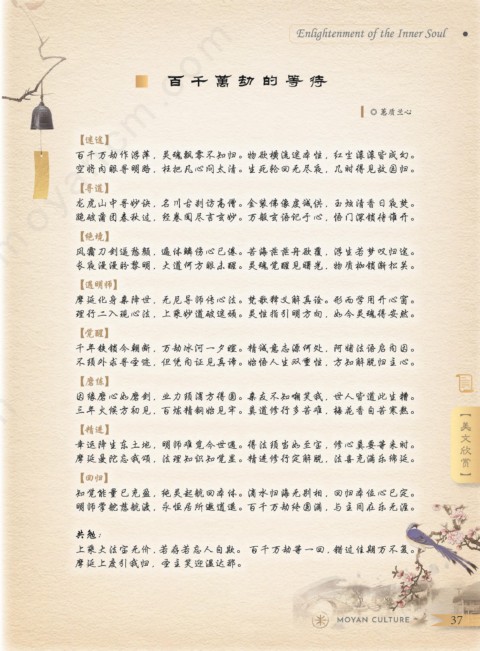 Enlightenment of the Inner Soul
百千萬劫的等待
◎ 蕙质兰心
【迷途】
百千万劫作浮萍，灵魂飘零不知归。物欲横流迷本性，红尘滚滚皆成幻。
空将肉眼寻明路，枉把凡心问太清。生死轮回无尽夜，几时得见故园归。
【寻道】
龙虎山中寻妙诀，名川古刹访高僧。金装佛像虔诚供，玉烛清香日夜焚。
跪破蒲团春秋过，经卷阅尽言玄妙。万般玄语记于心，悟门深锁待谁开。
【绝境】
风霜刀剑逼愁颜，遍体鳞伤心已倦。苦海茫茫舟欲覆，浮生若梦叹归途。
长夜漫漫盼黎明，大道何方眼未醒。灵魂觉醒见曙光，物质枷锁渐松关。
【遇明师】
摩诞化身乘降世，无尼寻师传心法。梵歌释义解真诠。形而常用开心窗。
理行二入砚心法，上乘妙道破迷顽。灵性指引明方向，如今灵魂得安然。
【觉醒】
千年铁锁今朝断，万劫冰河一夕澄。精诚意志源何处，阿赌法语启内因。
不须外求寻圣迹，但凭内证见真谛。始悟人生双重性，方知解脱归主心。
【磨练】
因缘磨心如磨剑，业力须消方得圆。亲友不知嘲笑我，世人皆道此生糟。
三年火候方初见，百炼精铜始见牢。莫道修行多苦难，梅花香自苦寒熬。
【精进】
幸运降生东土地，明师难觅今世遇。得法须当如至宝，修心莫要等来时。
摩诞曼陀忘我颂，法理知识知觉显。精进修行定解脱，法喜充满乐绵延。
【回归】
知觉能量已充盈，纯灵起航回本体。滴水归海无别相，回归本位心已定。
明师掌舵愁航渡，永恒居所遨逍遥。百千万劫终圆满，与主同在乐无涯。
共勉：
上乘大法宝无价，若存若忘人自欺。百千万劫等一回，错过佳期万不复。
摩诞上度引我归，圣主笑迎温达那。
【美文欣赏】
MOYAN CULTURE
37